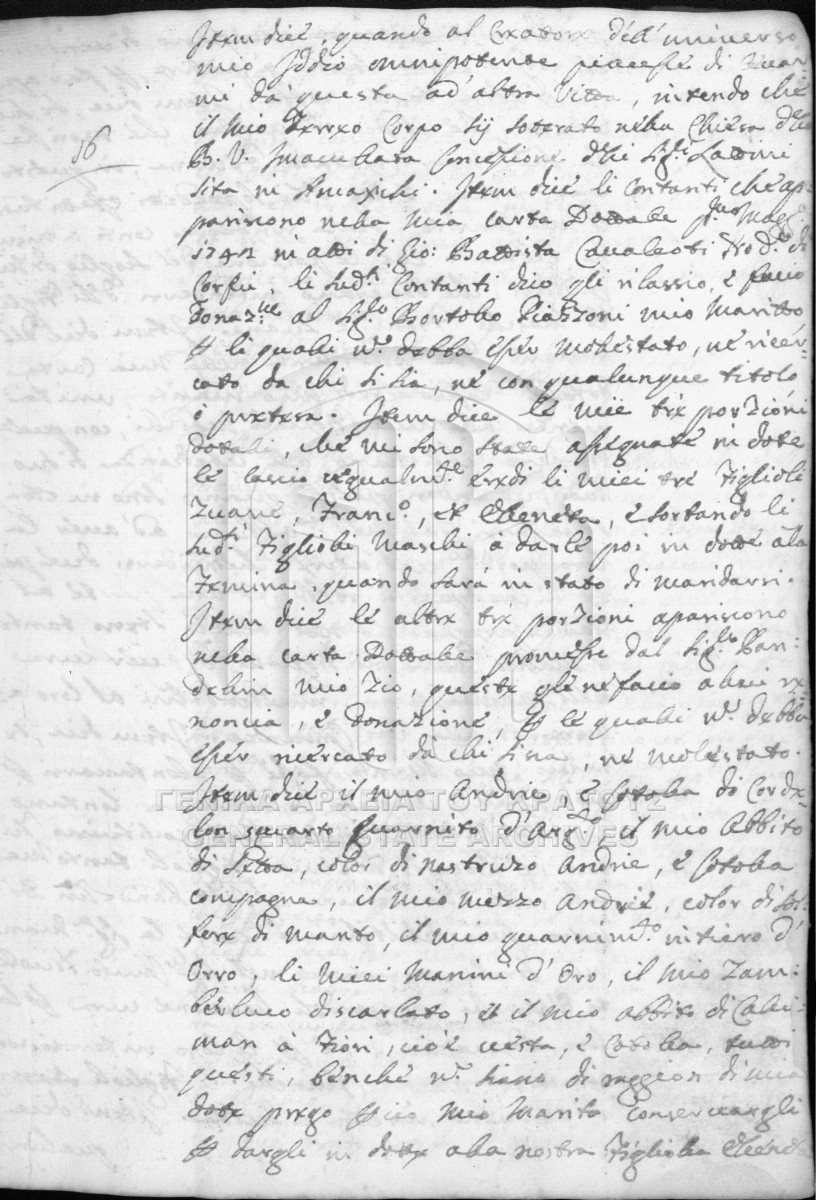 Item dice, quando al Creatore dell' universo
mio Iddio omnipotente piacesse di
mi da questa ad' altra Vitta, intendo che
il mio Terreo Corpo sij soterato nella Chiesa della
16
B. V. Imaculata Concesione delli Sig:ri Lattini
sita in Amaxichi. Item dice li contanti che ap-
pariscono nella mia carta Dottale
in atti di Gio: Battista Cavaleoti di
Corfù, li sud:ti Contanti dico gli rilascio, e facio
Donaz:ne al Sig:r Bortolo Piazzoni mio Maritto
li quali n: debba esser molestato, ne ricer-
cato da chi si sia, ne con qualunque titolo
o pretesa. Item dice le mie tre porzioni
dotali, che mi sono state assegnate in dote
le lascio egualm:te eredi li miei tre Figlioli
Zuane, Franc:o, et Elenetta, esortando li
sud:ti Figlioli Maschi à darle poi in dotte ala
Femina, quando sarà in stato di maridarsi.
Item dice le altre tre porzioni apariscono
nella carta Dottale promesse dal Sig:r Ban-
delin mio Zio, queste gle ne facio a lui re-
noncia, et Donazione, le quali n: debba
esser ricercato da chi si sia, ne molestato.
Item dice il mio Andrie, e Cotola do Corde-
lon guarnito d'Arg:to il mio Abbito
di Setta, color di nastruzo Andrie, e Cotola
compagna, il mio mezzo Andriè, color di sol-
fere di manto, il mio guarnim:to intiero d'
Orro, li miei Manini d' Oro, il mio Zam-
berluco di scarlato, et il mio abbito di Cali-
man à Fiori, cioè vesta, e Cotola, tutti
questi, benche n: siano di raggion di mia
dote prego mio Marito Conservargli
dargli in dote ala nostra Figliola Elenetta
ΓΕΝΙΚΑ ΑΡΧΕΙΑ ΤΟΥ ΚΡΑΤΟΥΣ
GENERAL STATE ARCHIVES